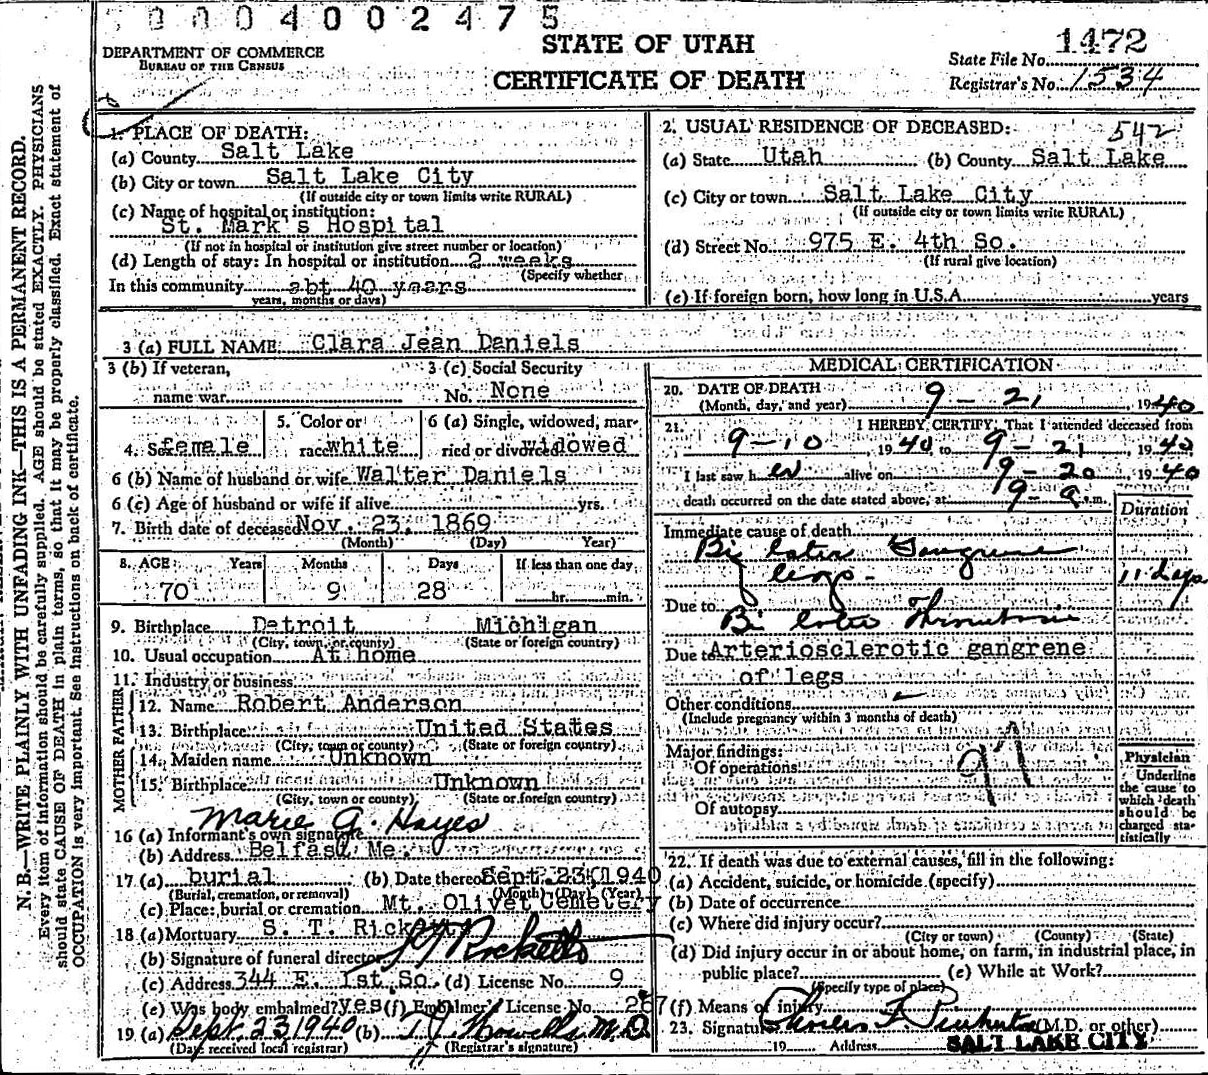 0004002475
DEPARTMENT OF COMMERCE
BUREAU OF THE CENSUS
STATE OF UTAH
CERTIFICATE OF DEATH
1472
State File No.
Registrar's No. 1534
N. B.—WRITE PLAINLY WITH UNFADING INK—THIS IS A PERMANENT RECORD.
Every item of information should be carefully supplied. AGE should be stated EXACTLY. PHYSICIANS
should state CAUSE OF DEATH in plain terms, so that it may be properly classified. Exact statement of
OCCUPATION is very important. See instructions on back of certificate.
1. PLACE OF DEATH:
(a) County Salt Lake
(b) City or town Salt Lake City
(If outside city or town limits write RURAL)
(c) Name of hospital or institution:
St. Mark's Hospital
(If not in hospital or institution give street number or location)
(d) Length of stay: In hospital or institution 2 weeks
(Specify whether
In this community abt 40 years
years, months or days)
2. USUAL RESIDENCE OF DECEASED: 542
(a) State Utah (b) County Salt Lake
(c) City or town Salt Lake City
(If outside city or town limits write RURAL)
(d) Street No. 975 E. 4th So.
(If rural give location)
(e) If foreign born, how long in U.S.A. years
3 (a) FULL NAME Clara Jean Daniels
3 (b) If veteran,
name war
3 (c) Social Security
No. None
4. Sex female
5. Color or
race white
6 (a) Single, widowed, mar-
ried or divorced widowed
6 (b) Name of husband or wife Walter Daniels
6 (c) Age of husband or wife if alive yrs.
7. Birth date of deceased Nov. 23, 1869
(Month) (Day) Year)
8. AGE: Years Months Days If less than one day
70 9 28 hr. min.
9. Birthplace Detroit Michigan
(City, town, or county) (State or foreign country)
10. Usual occupation At home
11. Industry or business
FATHER
12. Name Robert Anderson
13. Birthplace United States
(City, town or county) (State or foreign country)
MOTHER
14. Maiden name Unknown
15. Birthplace Unknown
(City, town or county) (State or foreign country)
16 (a) Informant's own signature Marie A. Hayes
(b) Address Belfast Me.
17 (a) burial (b) Date thereof Sept. 23, 1940
(Burial, cremation, or removal) (Month) (Day) (Year)
(c) Place: burial or cremation Mt. Olivet Cemetery
18 (a) Mortuary S. T. Ricketts
(b) Signature of funeral director Ricketts
(c) Address 344 E. 1st. So. (d) License No. 9
(e) Was body embalmed? yes (f) Embalmer's License No. 267
19 (a) Sept. 23, 1940 (b) T J Howells M.D.
(Date received local registrar) (Registrar's signature)
MEDICAL CERTIFICATION
20. DATE OF DEATH
(Month, day, and year) 9-21, 1940
21. I HEREBY CERTIFY, That I attended deceased from
9-10, 1940 to 9-21, 1940
I last saw her alive on 9-20, 1940
death occurred on the date stated above, at 9-a.m.
Duration
Immediate cause of death
Bi later Gangrene
legs- 11 days
Due to
Bi later Thrombosis
Due to Arteriosclerotic gangrene
of legs
Other conditions
(Include pregnancy within 3 months of death)
Major findings:
Of operations
97
Of autopsy
Physician
Underline
the cause to
which death
should be
charged sta-
tistically
22. If death was due to external causes, fill in the following:
(a) Accident, suicide, or homicide (specify)
(b) Date of occurrence
(c) Where did injury occur?
(City or town) (County) (State)
(d) Did injury occur in or about home, on farm, in industrial place, in
public place? (e) While at Work?
(Specify type of place)
(f) Means of injury
23. Signature (M.D. or other)
19 Address SALT LAKE CITY